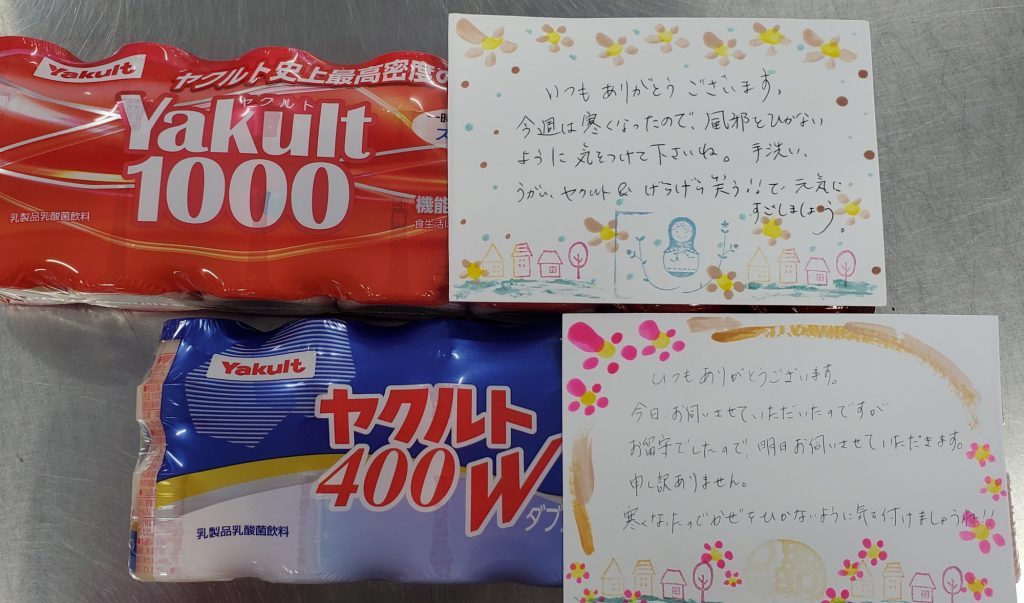 Yakult
ヤクルト史上最高密度の
ヤクルト
Yakult
1000
乳製品乳酸菌飲料
機能
食生活
いつもありがとうございます。
今週は寒くなったので、風邪をひかない
ように気をつけて下さいね。手洗い、
うがい、ヤクルト& げらげら笑う!!で元気に
すごしましょう。
Yakult
ヤクルト
400W
ダブ
乳製品乳酸菌飲料
いつもありがとうございます。
今日、お伺いさせていただいたのですが
お留守でしたので、明日お伺いさせていただきます。
申し訳ありません。
寒くなったのでかぜをひかないように気を付けましょうね!!